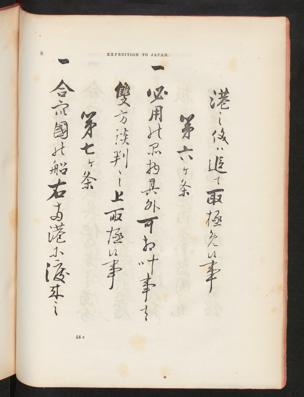 8
EXPEDITION TO JAPAN.
港之儀ハ追て取極候事
第六ケ条
一 必用の品物其外可相叶事者
雙方談判之上取極候事
第七ケ条
一 合衆國の船右両港に渡来之